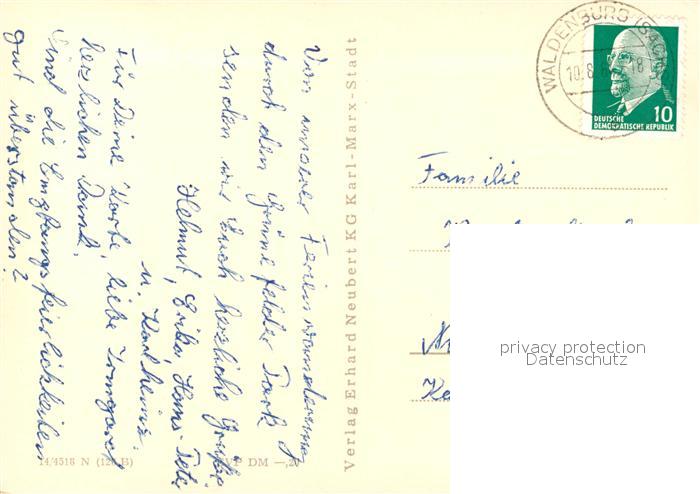 WALDENBURG (SACHS)
10.8. 18
10
DEUTSCHE
DEMOKRATISCHE REPUBLIK
Von unserer Ferienwanderung
durch den Grünefelder Park
senden wir Euch herzliche Grüße
Helmut, Erika, Hans-Peter
u. Karlheinz.
Für Deine Karte, liebe Irmgard,
herzlichen Dank.
Sind die Empfangsfeierlichkeiten
gut überstanden?
Verlag Erhard Neubert KG Karl-Marx-Stadt
14/4518 N (126 B)
VP DM —,20
Familie
privacy protection
Datenschutz